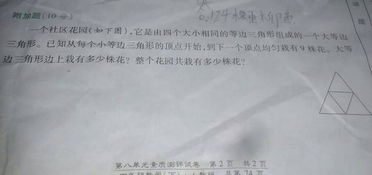 附加题(10分)
一个社区花园(如下图),它是由四个大小相同的等边三角形组成的一个大等边
三角形。已知从每个小等边三角形的顶点开始,到下一个顶点均匀栽有9株花。大等
边三角形边上栽有多少株花?整个花园共栽有多少株花?
第八单元素质测评试卷 第2页 共2页